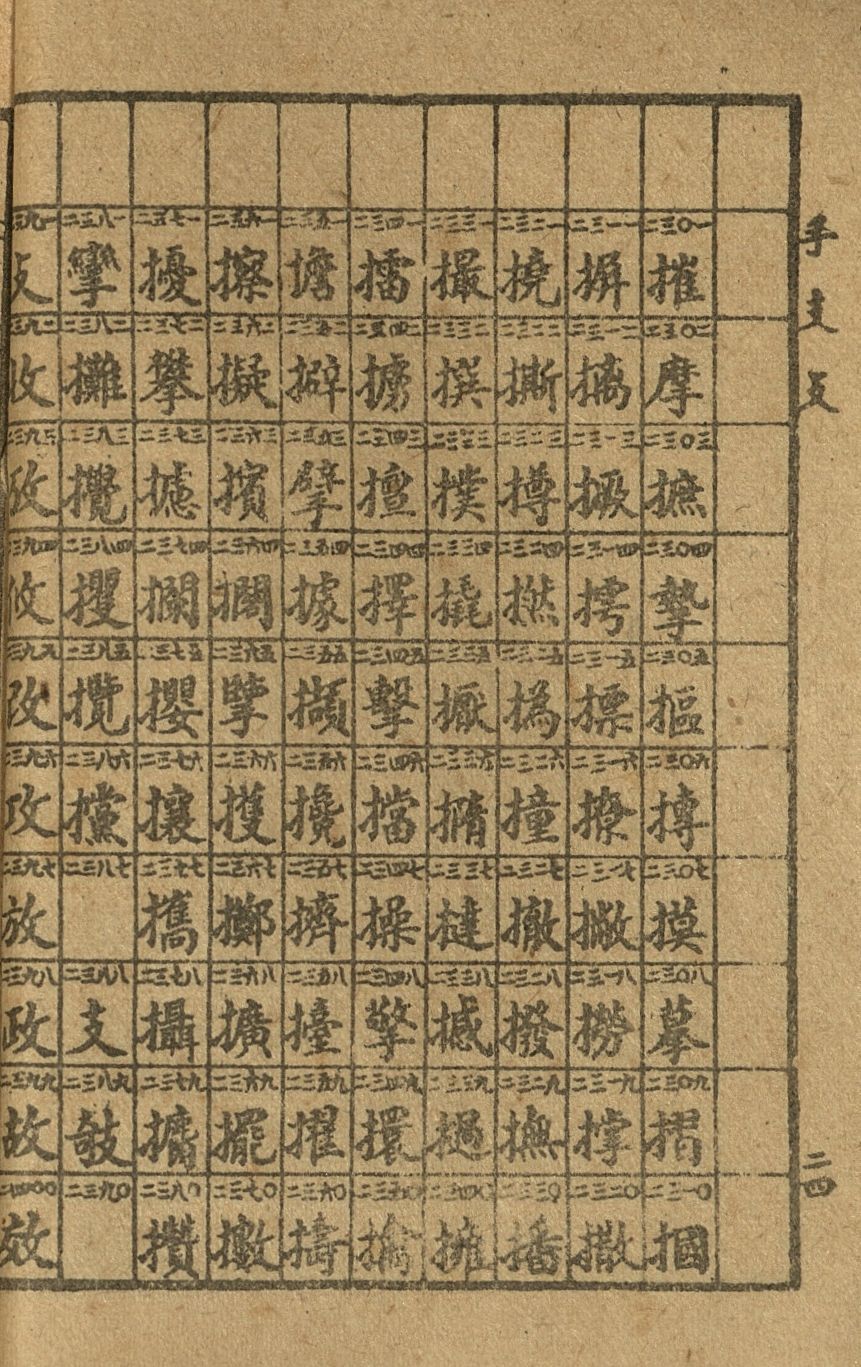 手支攴
二四
二三〇一 摧 二三〇二 摩 二三〇三 摭 二三〇四 摯 二三〇五 摳 二三〇六 摶 二三〇七 摸 二三〇八 摹 二三〇九 摺 二三一〇 摑
二三一一 摒 二三一二 摛 二三一三 二三一四 摴 二三一五 摽 二三一六 撩 二三一七 撇 二三一八 撈 二三一九 撐 二三二〇 撒
二三二一 撓 二三二二 撕 二三二三 撙 二三二四 撚 二三二五 撝 二三二六 撞 二三二七 撤 二三二八 撥 二三二九 撫 二三三〇 播
二三三一 撮 二三三二 撰 二三三三 撲 二三三四 撬 二三三五 撅 二三三六 撱 二三三七 撻 二三三八 撼 二三三九 撾 二三四〇 擁
二三四一 擂 二三四二 擄 二三四三 擅 二三四四 擇 二三四五 擊 二三四六 擋 二三四七 操 二三四八 擎 二三四九 擐 二三五〇 擒
二三五一 擔 二三五二 擗 二三五三 擘 二三五四 據 二三五五 擷 二三五六 攙 二三五七 擠 二三五八 擡 二三五九 擢 二三六〇 擣
二三六一 擦 二三六二 擬 二三六三 擯 二三六四 擱 二三六五 擥 二三六六 擭 二三六七 擲 二三六八 擴 二三六九 擺 二三七〇 擻
二三七一 擾 二三七二 攀 二三七三 攄 二三七四 攔 二三七五 攖 二三七六 攘 二三七七 攜 二三七八 攝 二三七九 二三八〇 攢
二三八一 攣 二三八二 攤 二三八三 攪 二三八四 攫 二三八五 攬 二三八六 攩 二三八七 二三八八 支 二三八九 攲 二三九〇
三九一 攴 三九二 收 三九三 攷 三九四 攸 三九五 改 三九六 攻 二三九七 放 二三九八 政 二三九九 故 二四〇〇 效